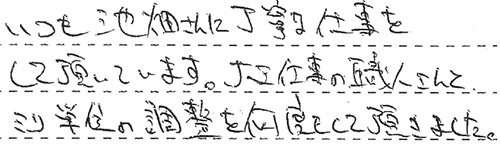 いつも池畑さんに丁寧な仕事を
して頂いています。大工仕事の職人さんで
ミリ単位の調整を何度もして頂きました。